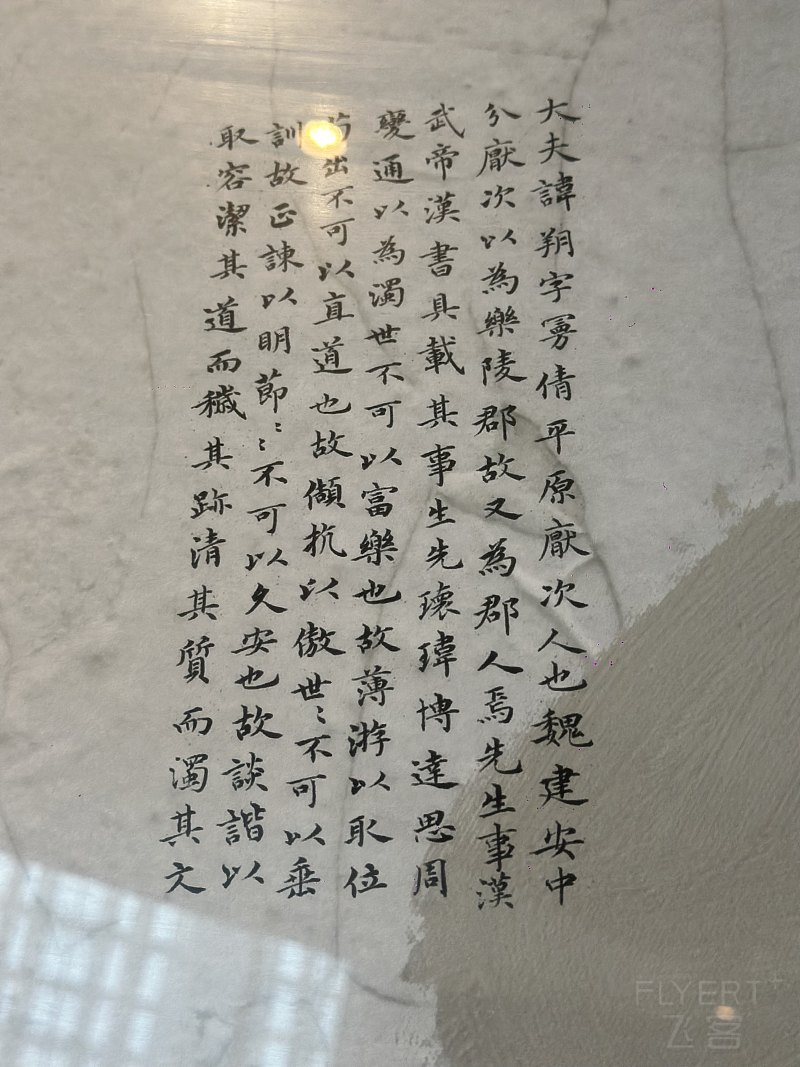 大夫諱朔字曼倩平原厭次人也魏建安中
分厭次以為樂陵郡故又為郡人焉先生事漢
武帝漢書具載其事生先瓌瑋博達思周
變通以為濁世不可以富樂也故薄游以取位
苟出不可以直道也故頡抗以傲世〻不可以垂
訓故正諫以明節〻不可以久安也故談諧以
取容潔其道而穢其跡清其質而濁其文
FLYERT+
飞客